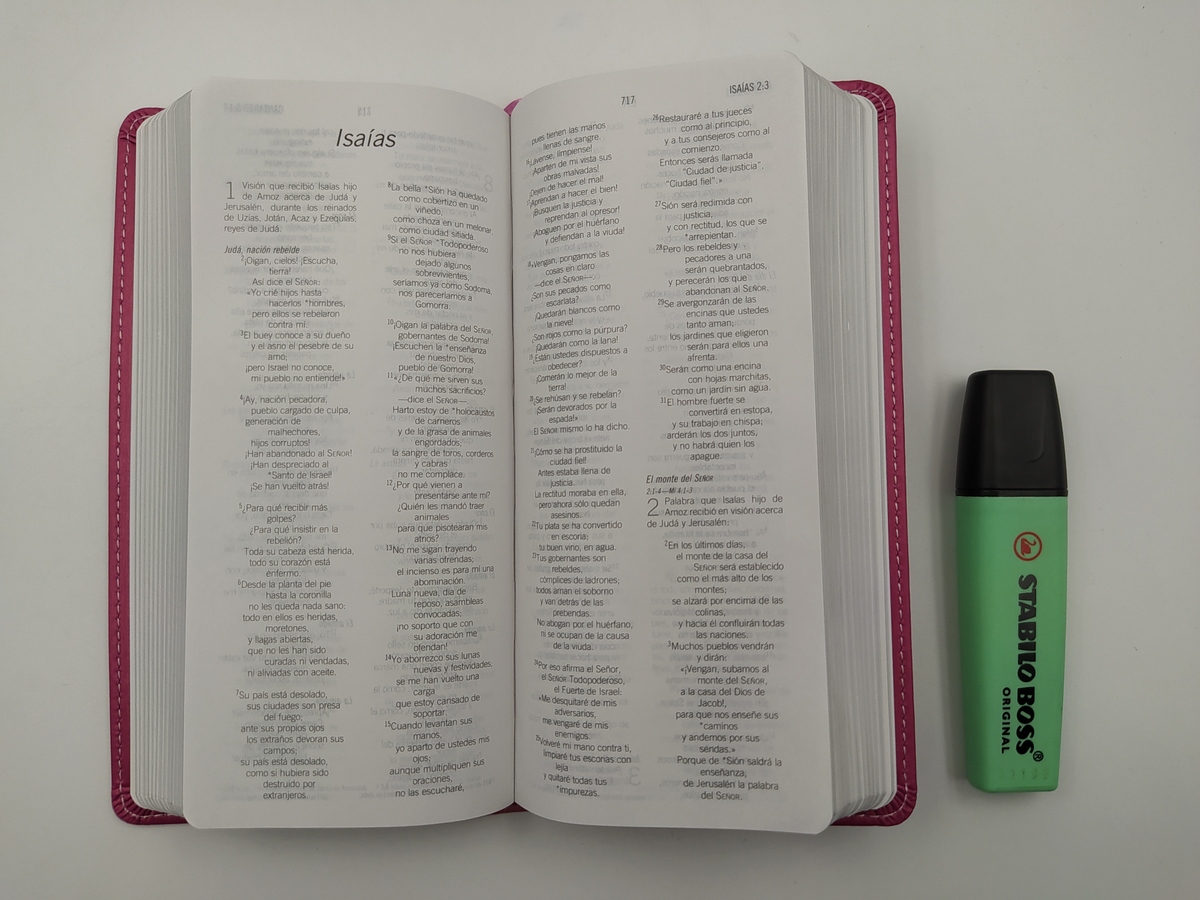 Isaías
1 Visión que recibió Isaías hijo
de Amoz acerca de Judá y
Jerusalén, durante los reinados
de Uzías, Jotán, Acaz y Ezequías,
reyes de Judá.
Judá, nación rebelde
2¡Oigan, cielos! ¡Escucha,
tierra!
Así dice el SEÑOR:
«Yo crié hijos hasta
hacerlos *hombres,
pero ellos se rebelaron
contra mí.
3El buey conoce a su dueño
y el asno el pesebre de su
amo;
¡pero Israel no conoce,
mi pueblo no entiende!»
4¡Ay, nación pecadora,
pueblo cargado de culpa,
generación de
malhechores,
hijos corruptos!
¡Han abandonado al SEÑOR!
¡Han despreciado al
*Santo de Israel!
¡Se han vuelto atrás!
5¿Para qué recibir más
golpes?
¿Para qué insistir en la
rebelión?
Toda su cabeza está herida,
todo su corazón está
enfermo.
6Desde la planta del pie
hasta la coronilla
no les queda nada sano:
todo en ellos es heridas,
moretones,
y llagas abiertas,
que no les han sido
curadas ni vendadas,
ni aliviadas con aceite.
7Su país está desolado,
sus ciudades son presa
del fuego;
ante sus propios ojos
los extraños devoran sus
campos;
su país está desolado,
como si hubiera sido
destruido por
extranjeros.
8La bella *Sión ha quedado
como cobertizo en un
viñedo,
como choza en un melonar,
como ciudad sitiada.
9Si el SEÑOR *Todopoderoso
no nos hubiera
dejado algunos
sobrevivientes,
seríamos ya como Sodoma,
nos pareceríamos a
Gomorra.
10¡Oigan la palabra del SEÑOR,
gobernantes de Sodoma!
¡Escuchen la *enseñanza
de nuestro Dios,
pueblo de Gomorra!
11«¿De qué me sirven sus
muchos sacrificios?
—dice el SEÑOR—.
Harto estoy de *holocaustos
de carneros
y de la grasa de animales
engordados;
la sangre de toros, corderos
y cabras
no me complace.
12¿Por qué vienen a
presentarse ante mí?
¿Quién les mandó traer
animales
para que pisotearan mis
atrios?
13No me sigan trayendo
vanas ofrendas;
el incienso es para mí una
abominación.
Luna nueva, día de
reposo, asambleas
convocadas;
¡no soporto que con
su adoración me
ofendan!
14Yo aborrezco sus lunas
nuevas y festividades;
se me han vuelto una
carga
que estoy cansado de
soportar.
15Cuando levantan sus
manos,
yo aparto de ustedes mis
ojos;
aunque multipliquen sus
oraciones,
no las escucharé,
717
ISAÍAS 2:3
pues tienen las manos
llenas de sangre.
16¡Lávense, límpiense!
¡Aparten de mi vista sus
obras malvadas!
¡Dejen de hacer el mal!
17¡Aprendan a hacer el bien!
¡Busquen la justicia y
reprendan al opresor!
¡Aboguen por el huérfano
y defiendan a la viuda!
18»Vengan, pongamos las
cosas en claro
—dice el SEÑOR—.
¿Son sus pecados como
escarlata?
¡Quedarán blancos como
la nieve!
¿Son rojos como la púrpura?
¡Quedarán como la lana!
19¿Están ustedes dispuestos a
obedecer?
¡Comerán lo mejor de la
tierra!
20¿Se rehúsan y se rebelan?
¡Serán devorados por la
espada!»
El SEÑOR mismo lo ha dicho.
21¡Cómo se ha prostituido la
ciudad fiel!
Antes estaba llena de
justicia.
La rectitud moraba en ella,
pero ahora sólo quedan
asesinos.
22Tu plata se ha convertido
en escoria;
tu buen vino, en agua.
23Tus gobernantes son
rebeldes,
cómplices de ladrones;
todos aman el soborno
y van detrás de las
prebendas.
No abogan por el huérfano,
ni se ocupan de la causa
de la viuda.
24Por eso afirma el Señor,
el SEÑOR Todopoderoso,
el Fuerte de Israel:
«Me desquitaré de mis
adversarios,
me vengaré de mis
enemigos.
25Volveré mi mano contra ti,
limpiaré tus escorias con
lejía
y quitaré todas tus
*impurezas.
26Restauraré a tus jueces
como al principio,
y a tus consejeros como al
comienzo.
Entonces serás llamada
“Ciudad de justicia”,
“Ciudad fiel”.»
27Sión será redimida con
justicia,
y con rectitud, los que se
*arrepientan.
28Pero los rebeldes y
pecadores a una
serán quebrantados,
y perecerán los que
abandonan al SEÑOR.
29Se avergonzarán de las
encinas que ustedes
tanto aman;
los jardines que eligieron
serán para ellos una
afrenta.
30Serán como una encina
con hojas marchitas,
como un jardín sin agua.
31El hombre fuerte se
convertirá en estopa,
y su trabajo en chispa;
arderán los dos juntos,
y no habrá quien los
apague.
El monte del SEÑOR
2:1-4—Mi 4:1-3
2 Palabra que Isaías hijo de
Amoz recibió en visión acerca
de Judá y Jerusalén:
2En los últimos días,
el monte de la casa del
SEÑOR será establecido
como el más alto de los
montes;
se alzará por encima de las
colinas,
y hacia él confluirán todas
las naciones.
3Muchos pueblos vendrán
y dirán:
«¡Vengan, subamos al
monte del SEÑOR,
a la casa del Dios de
Jacob!,
para que nos enseñe sus
*caminos
y andemos por sus
sendas.»
Porque de *Sión saldrá la
enseñanza,
de Jerusalén la palabra
del SEÑOR.
STABILO BOSS®
ORIGINAL